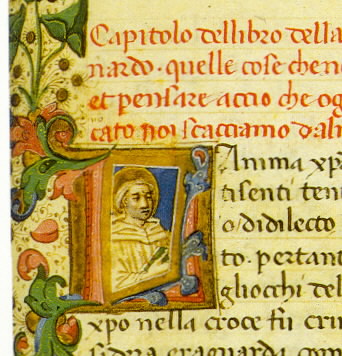 Capitolo dellibro della
nardo · quelle cose chen
et pensare accio che og
cato noi scacciamo dal
Anima xp̄
tisenti ten
o didilecto
to · pertant
gliocchi del
xpo nella croce fu cri